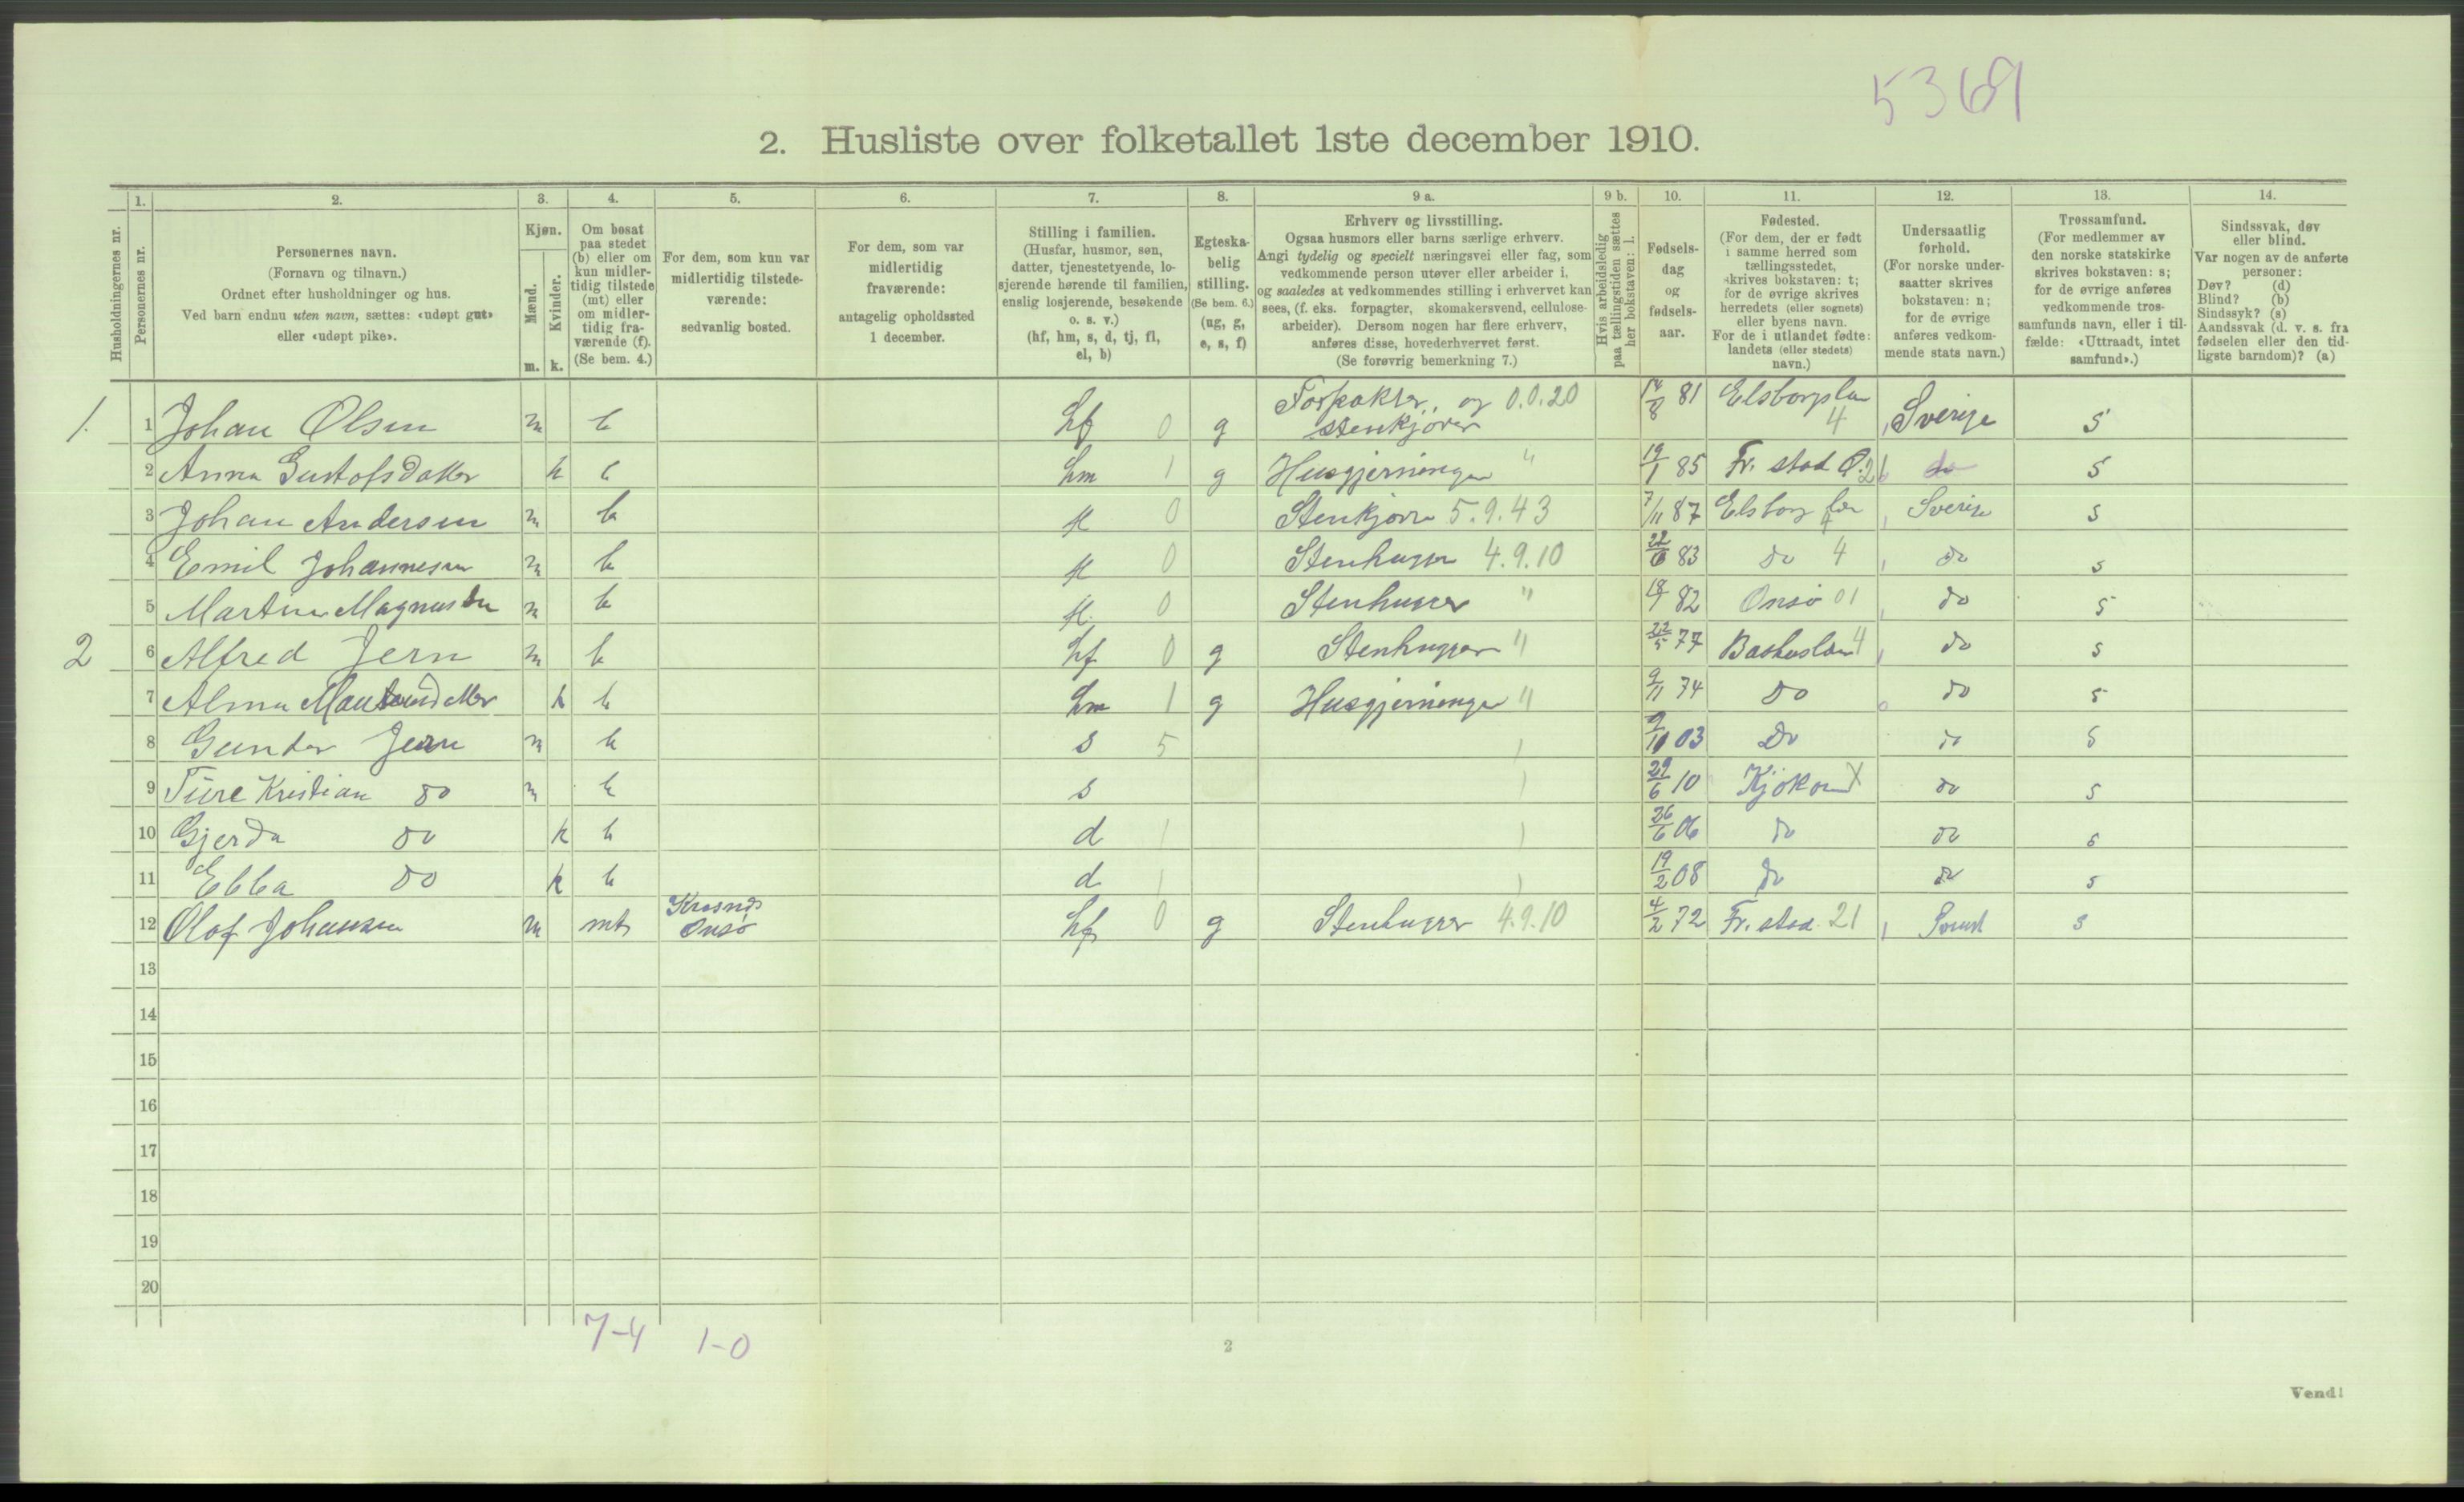 5369
2. Husliste over folketallet 1ste december 1910.
Husholdningernes nr.
1. Personernes nr.
2. Personernes navn.
(Fornavn og tilnavn.)
Ordnet efter husholdninger og hus.
Ved barn endnu uten navn, sættes: «udøpt gut»
eller «udøpt pike».
3. Kjøn.
Mænd. Kvinder.
m. k.
4. Om bosat
paa stedet
(b) eller om
kun midler-
tidig tilstede
(mt) eller
om midler-
tidig fra-
værende (f).
(Se bem. 4.)
5. For dem, som kun var
midlertidig tilstede-
værende:
sedvanlig bosted.
6. For dem, som var
midlertidig
fraværende:
antagelig opholdssted
1 december.
7. Stilling i familien.
(Husfar, husmor, søn,
datter, tjenestetyende, lo-
sjerende hørende til familien,
enslig losjerende, besøkende
o. s. v.)
(hf, hm, s, d, tj, fl,
el, b)
8. Egteska-
belig
stilling.
(Se bem. 6.)
(ug, g,
e, s, f)
9 a. Erhverv og livsstilling.
Ogsaa husmors eller barns særlige erhverv.
Angi tydelig og specielt næringsvei eller fag, som
vedkommende person utøver eller arbeider i,
og saaledes at vedkommendes stilling i erhvervet kan
sees, (f. eks. forpagter, skomakersvend, cellulose-
arbeider). Dersom nogen har flere erhverv,
anføres disse, hovederhvervet først.
(Se forøvrig bemerkning 7.)
9 b. Hvis arbeidsledig
paa tællingstiden sættes
her bokstaven: l.
10. Fødsels-
dag
og
fødsels-
aar.
11. Fødested.
(For dem, der er født
i samme herred som
tællingsstedet,
skrives bokstaven: t;
for de øvrige skrives
herredets (eller sognets)
eller byens navn.
For de i utlandet fødte:
landets (eller stedets)
navn.)
12. Undersaatlig
forhold.
(For norske under-
saatter skrives
bokstaven: n;
for de øvrige
anføres vedkom-
mende stats navn.)
13. Trossamfund.
(For medlemmer av
den norske statskirke
skrives bokstaven: s;
for de øvrige anføres
vedkommende tros-
samfunds navn, eller i til-
fælde: «Uttraadt, intet
samfund».)
14. Sindssvak, døv
eller blind.
Var nogen av de anførte
personer:
Døv? (d)
Blind? (b)
Sindssyk? (s)
Aandssvak (d. v. s. fra
fødselen eller den tid-
ligste barndom)? (a)
1. 1 Johan Olsen m b hf 0 g Forpakter og 0.0.20 stenkjører 14/8 81 Elsborgslæn 4 Sverige s
2 Anna Gustafsdatter k b hm 1 g Husgjerninger " 19/1 85 Fr. stad Ø. 21 do s
3 Johan Andersen m b fl 0 Stenkjører 5.9.43 7/11 87 Elsborg læn 4 Sverige s
4 Emil Johannesen m b fl 0 Stenhugger 4.9.10 83 do 4 do s
5 Martin Magnus m b fl 0 Stenhugger " 82 Onsø 01 do s
2 6 Alfred Jern m b hf 0 g Stenhugger " 22/5 77 Bachuslæn 4 do s
7 Alma k b hm 1 g Husgjerninger " 9/11 74 do do s
8 Gunder Jern m b s 5 9/10 03 do do s
9 Ture Kristian do m b s 29/6 10 Kjøkøen X do s
10 Gjerda do k b d 1 26/6 06 do do s
11 Ebba do k b d 1 19/2 08 do do s
12 Olaf Johansen m mt Onsø hf 0 g Stenhugger 4.9.10 4/2 72 Fr. stad 21 Svensk s
13
14
15
16
17
18
19
20
7-4 1-0
2
Vend!